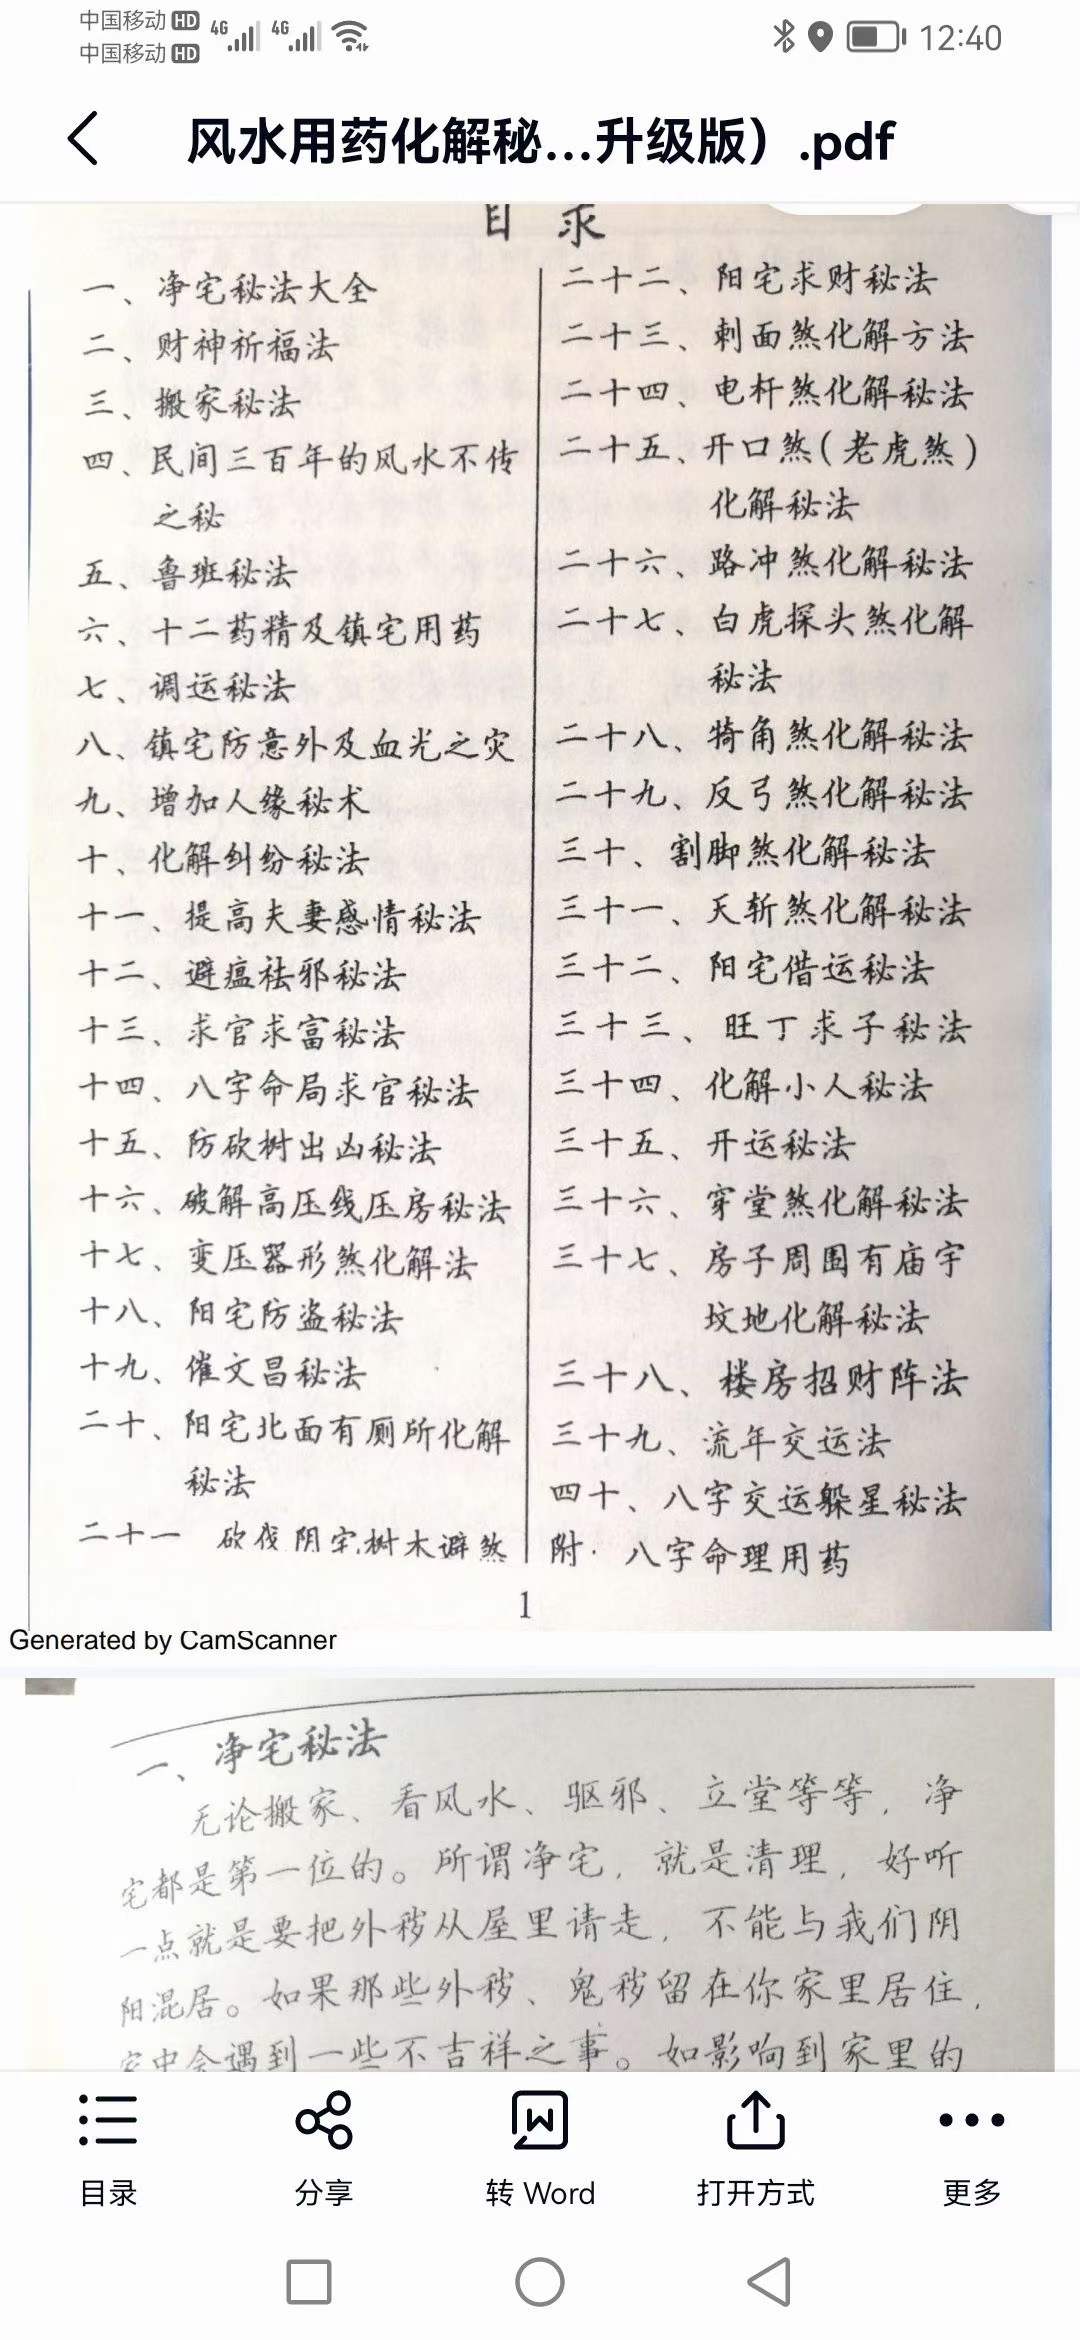 中国移动 HD 4G 4G 12:40
中国移动 HD
风水用药化解秘...升级版）.pdf
目 录
一、净宅秘法大全
二、财神祈福法
三、搬家秘法
四、民间三百年的风水不传
之秘
五、鲁班秘法
六、十二药精及镇宅用药
七、调运秘法
八、镇宅防意外及血光之灾
九、增加人缘秘术
十、化解纠纷秘法
十一、提高夫妻感情秘法
十二、避瘟祛邪秘法
十三、求官求富秘法
十四、八字命局求官秘法
十五、防砍树出凶秘法
十六、破解高压线压房秘法
十七、变压器形煞化解法
十八、阳宅防盗秘法
十九、催文昌秘法
二十、阳宅北面有厕所化解
秘法
二十一 砍伐阴宅树木避煞
二十二、阳宅求财秘法
二十三、刺面煞化解方法
二十四、电杆煞化解秘法
二十五、开口煞（老虎煞）
化解秘法
二十六、路冲煞化解秘法
二十七、白虎探头煞化解
秘法
二十八、犄角煞化解秘法
二十九、反弓煞化解秘法
三十、割脚煞化解秘法
三十一、天斩煞化解秘法
三十二、阳宅借运秘法
三十三、旺丁求子秘法
三十四、化解小人秘法
三十五、开运秘法
三十六、穿堂煞化解秘法
三十七、房子周围有庙宇
坟地化解秘法
三十八、楼房招财阵法
三十九、流年交运法
四十、八字交运躲星秘法
附·八字命理用药
1
Generated by CamScanner
一、净宅秘法
无论搬家、看风水、驱邪、立堂等等，净
宅都是第一位的。所谓净宅，就是清理，好听
一点就是要把外秽从屋里请走，不能与我们阴
阳混居。如果那些外秽、鬼秽留在你家里居住，
家中会遇到一些不吉祥之事。如影响到家里的
目录
分享
转 Word
打开方式
更多